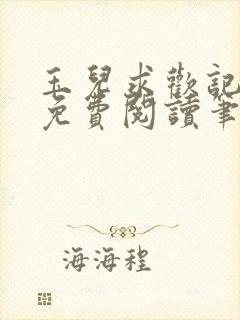 玉兒求歡記
免費閱讀筆
海海程